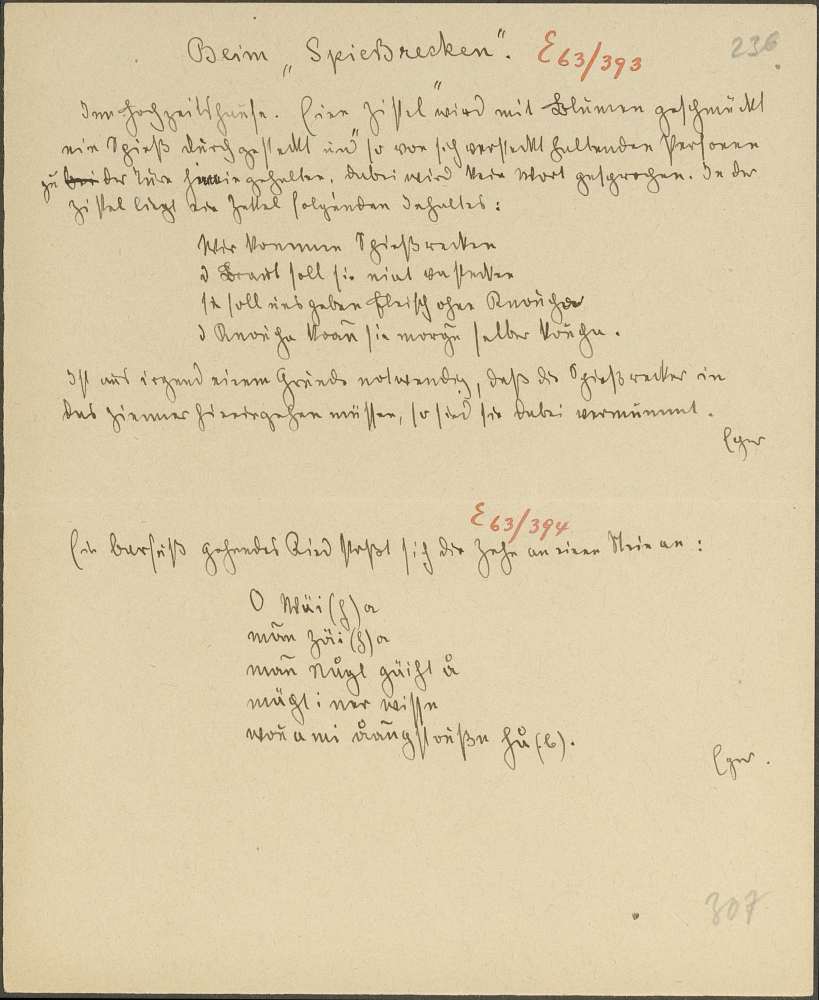 Beim „Spießrecken".   E 63/393   236
Im Hochzeitshause. Eine Zistel wird mit Blumen geschmückt
ein Spieß durchgesteckt und so von sich versteckt haltenden Personen
zu bei der Türe hineingehalten, dabei wird kein Wort gesprochen. In der
Zistel liegt ein Zettel folgenden Inhaltes:
Wir kommen Spießrecken
d Braut soll sie niat vastecken
sie soll uns geben Fleisch ohne Knoucha
d Knoucha koañ sie morgn selber koucha.
Ist aus irgend einem Grunde notwendig, daß die Spießrecker in
das Zimmer hineingehen müssen, so sind sie dabei vermummt.
Eger
E 63/394
Ein barfuß gehendes Kind stoßt sich die Zehe an einen Stein an:
O Wäi(h)a
mãn Zäi(h)a
mãn Någl gäiht å
mächt i ner wissn
wou a mi åãngstoußn hå(b).
Eger.
307